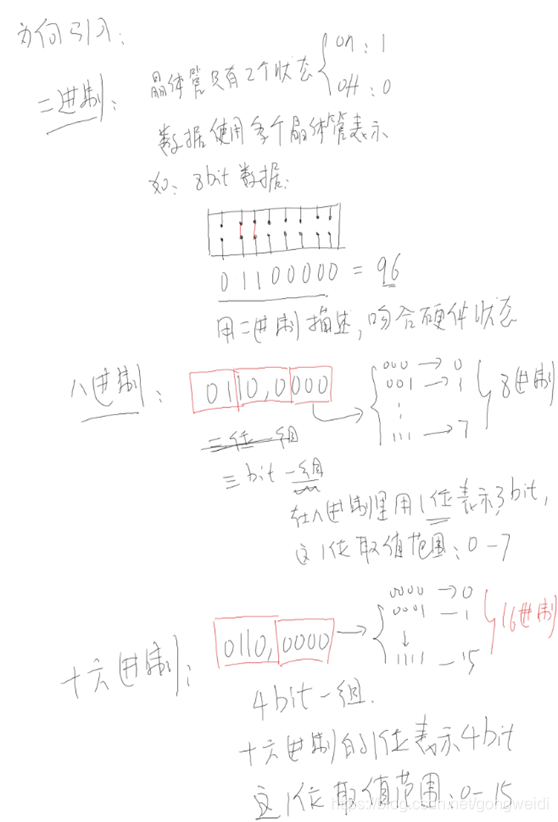 为何引入：
二进制：
晶体管只有2个状态 on：1
off：0
数据使用多个晶体管表示
如：8bit数据：
01100000 = 96
用二进制描述，吻合硬件状态
八进制：
0110,0000
000 → 0
001 → 1
111 → 7
8进制
三位一组
三bit一组
在八进制里用1位表示3bit，
这1位取值范围：0-7
十六进制：
0110,0000
0000 → 0
0001 — 1
1111 — 15
16进制
4bit一组.
十六进制的1位表示4bit
这1位取值范围：0-15
https://blog.csdn.net/gongweidi